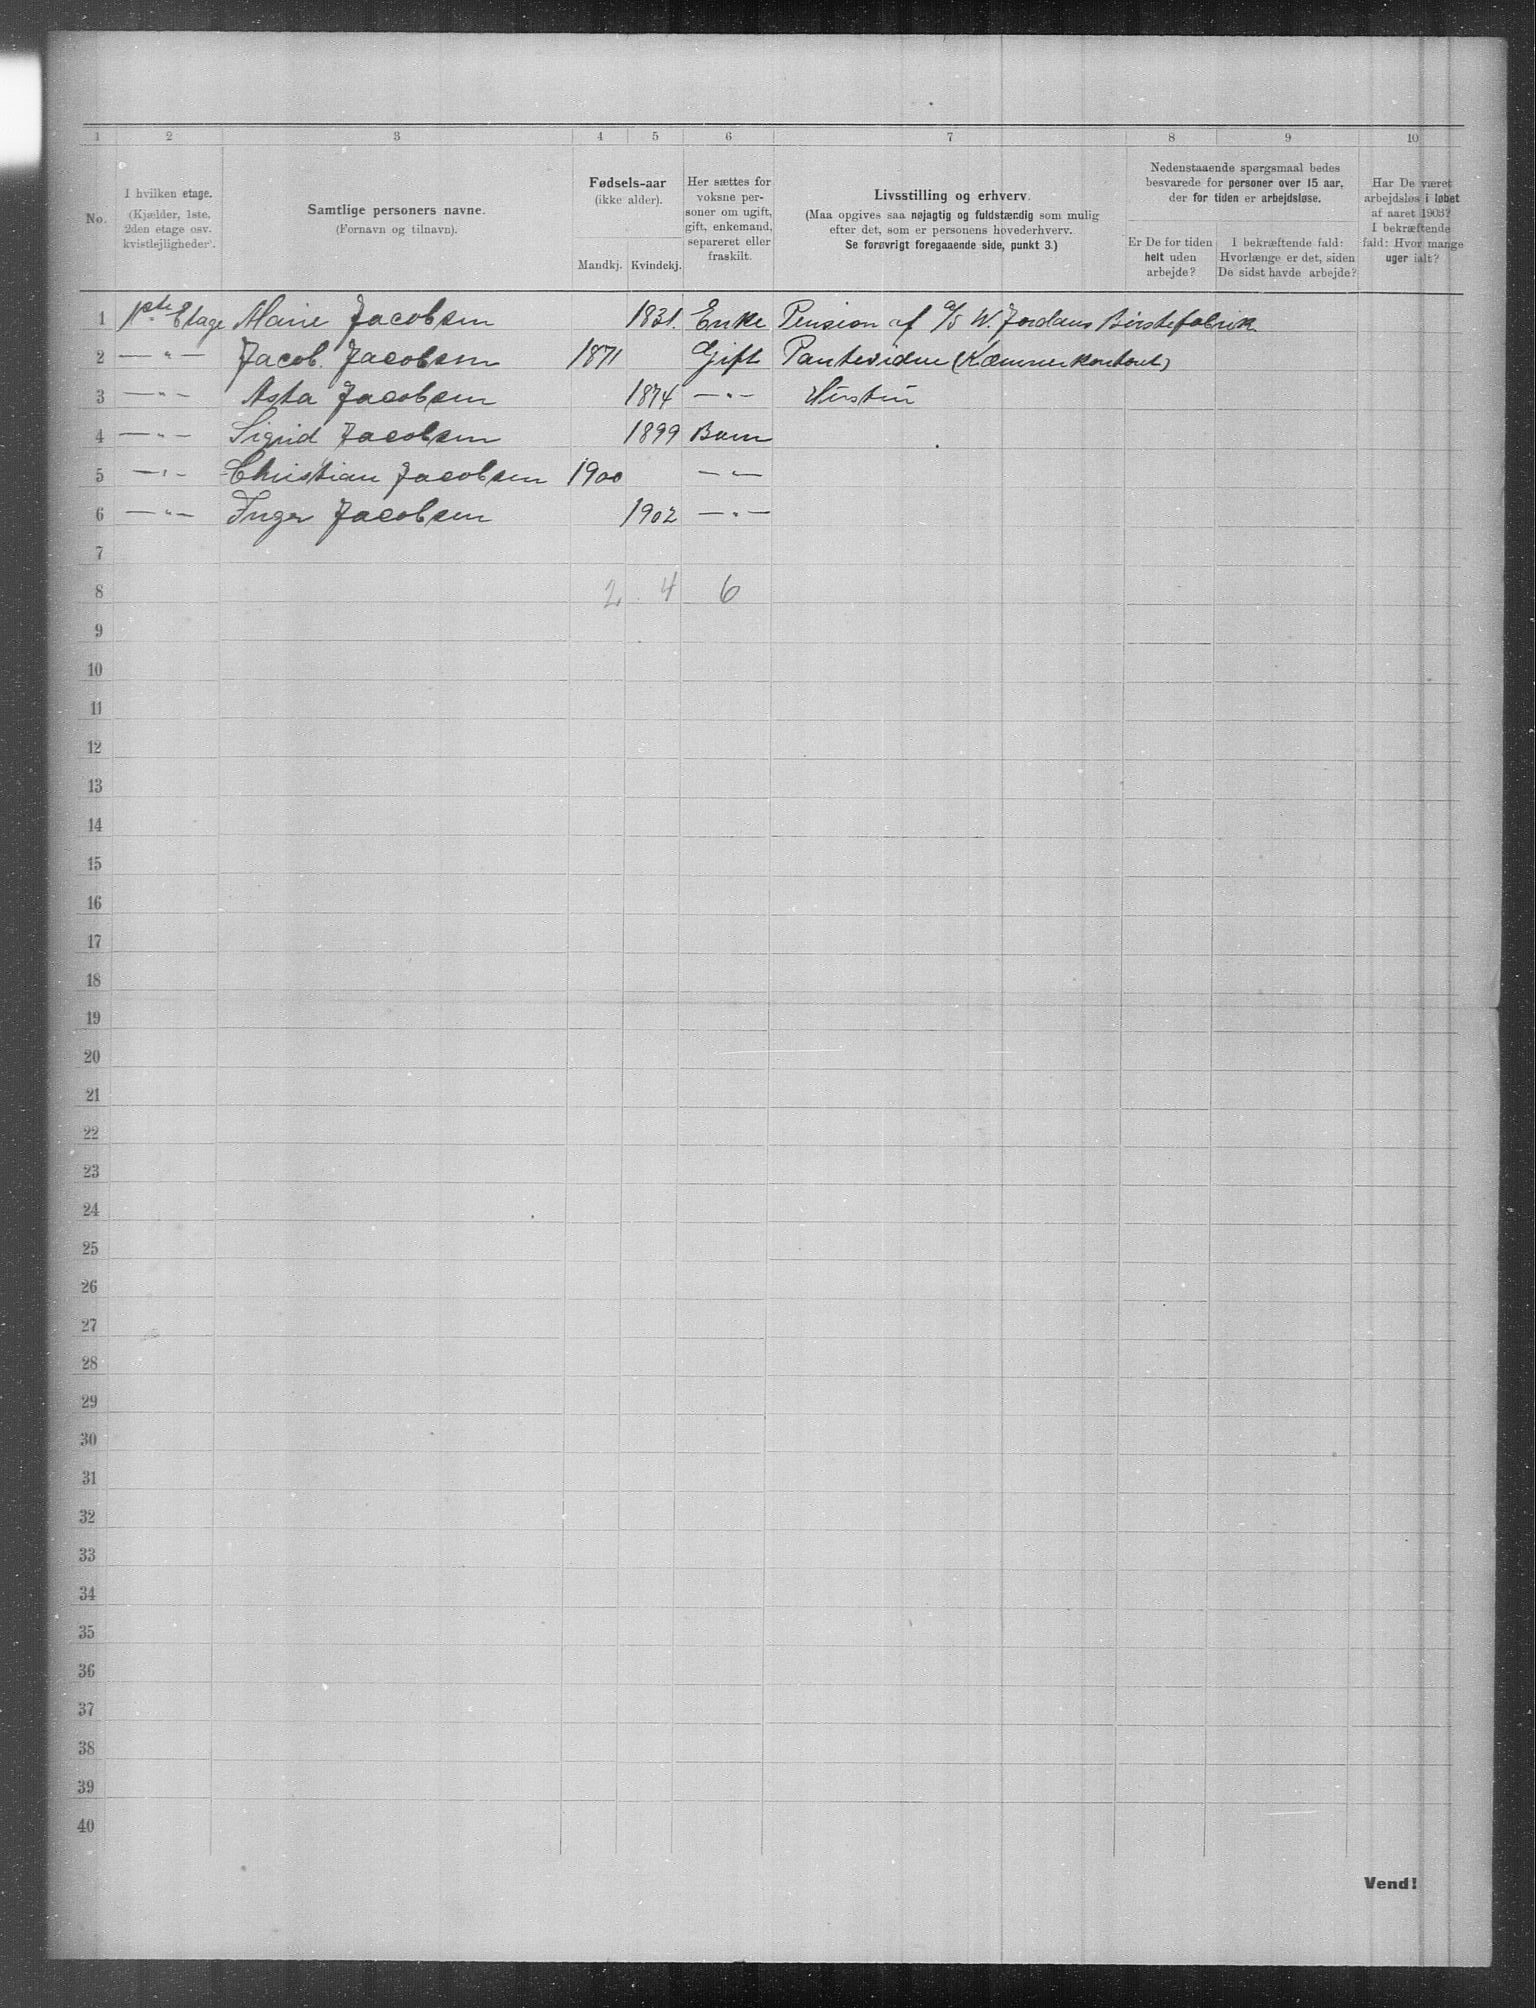 1 2 3 4 5 6 7 8 9 10
No.
I hvilken etage.
(Kjælder, 1ste,
2den etage osv.
kvistlejligheder).
Samtlige personers navne.
(Fornavn og tilnavn).
Fødsels-aar
(ikke alder).
Mandkj. Kvindekj.
Her sættes for
voksne per-
soner om ugift,
gift, enkemand,
separeret eller
fraskilt.
Livsstilling og erhverv.
(Maa opgives saa nøjagtig og fuldstændig som mulig
efter det, som er personens hovederhverv.
Se forøvrigt foregaaende side, punkt 3.)
Nedenstaaende spørgsmaal bedes
besvarede for personer over 15 aar,
der for tiden er arbejdsløse.
Er De for tiden
helt uden
arbejde?
I bekræftende fald:
Hvorlænge er det, siden
De sidst havde arbejde?
Har De været
arbejdsløs i løbet
af aaret 1903?
I bekræftende
fald: Hvor mange
uger ialt?
1 1ste Etage Marie Jacobsen 1831. Enke Pension af A/S W. Jordans Børstefabrik
2 — " — Jacob. Jacobsen 1871 Gift Pantevidne (Kæmnerkontoret)
3 — " — Asta Jacobsen 1874 — " — Hustru
4 — " — Sigrid Jacobsen 1899 Barn
5 — " — Christian Jacobsen 1900 — " —
6 — " — Inger Jacobsen 1902 — " —
7
8 2 4 6
9
10
11
12
13
14
15
16
17
18
19
20
21
22
23
24
25
26
27
28
29
30
31
32
33
34
35
36
37
38
39
40
Vend!